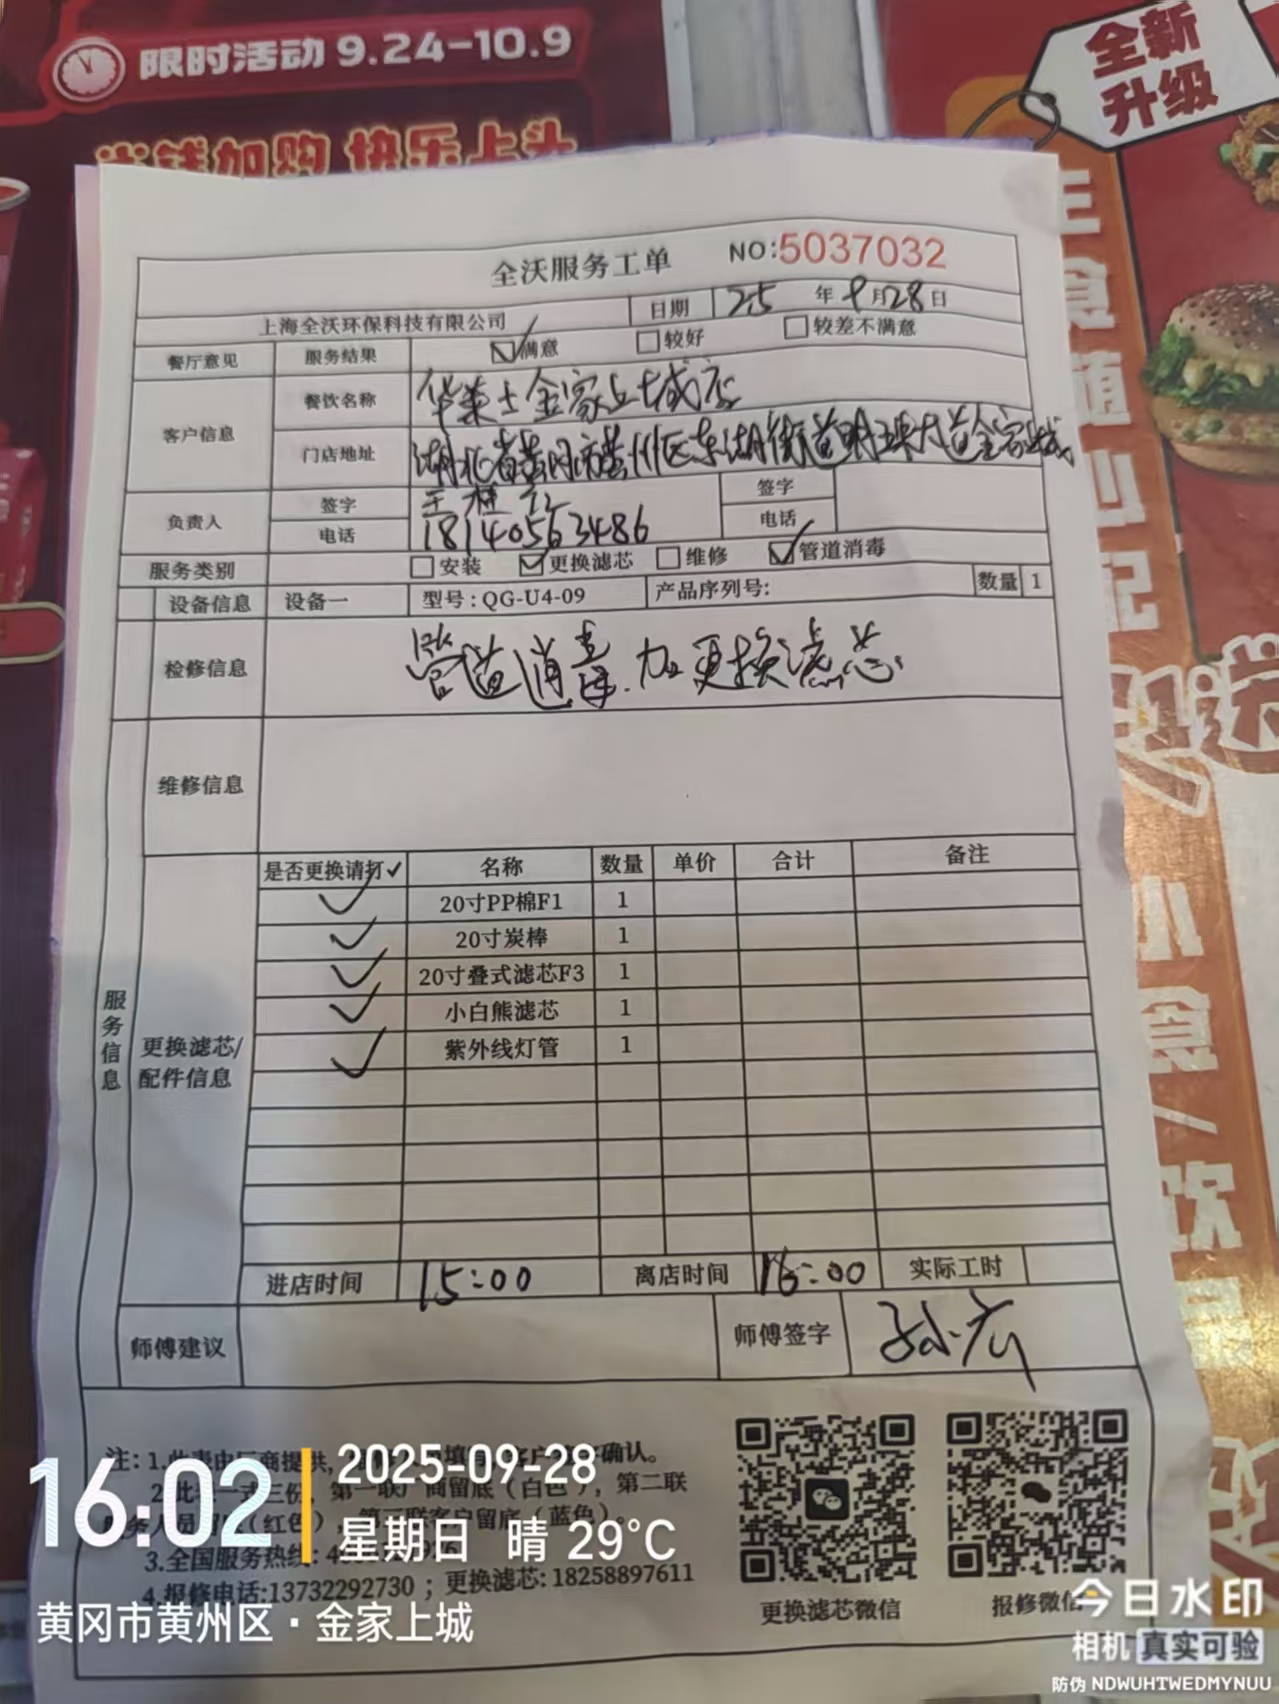 限时活动 9.24-10.9
省钱加购 快乐上头
全新
升级
主食随心配
小食/饮品
全沃服务工单 NO:5037032
上海全沃环保科技有限公司 日期 25年9月28日
餐厅意见 服务结果 ☑满意 □较好 □较差不满意
客户信息 餐饮名称 华莱士金家上城店
门店地址 湖北省黄冈市黄州区东湖街道明珠大道金家上城
负责人 签字 签字
电话 18140563486 电话
服务类别 □安装 ☑更换滤芯 □维修 ☑管道消毒
设备信息 设备一 型号:QG-U4-09 产品序列号: 数量 1
检修信息 管道消毒.加更换滤芯.
维修信息
服务信息
更换滤芯/
配件信息
是否更换请打✓ 名称 数量 单价 合计 备注
✓ 20寸PP棉F1 1
✓ 20寸炭棒 1
✓ 20寸叠式滤芯F3 1
✓ 小白熊滤芯 1
✓ 紫外线灯管 1
进店时间 15:00 离店时间 16:00 实际工时
师傅建议 师傅签字
注: 1.此表由厂商提供, 确认。
第一联厂商留底(白色), 第二联
(红色), 第三联客户留底(蓝色)。
3.全国服务热线:
4.报修电话:13732292730 ; 更换滤芯: 18258897611
更换滤芯微信 报修微信
16:02
2025-09-28
星期日 晴 29°C
黄冈市黄州区·金家上城
今日水印
相机 真实可验
防伪 NDWUHTWEDMYNUU